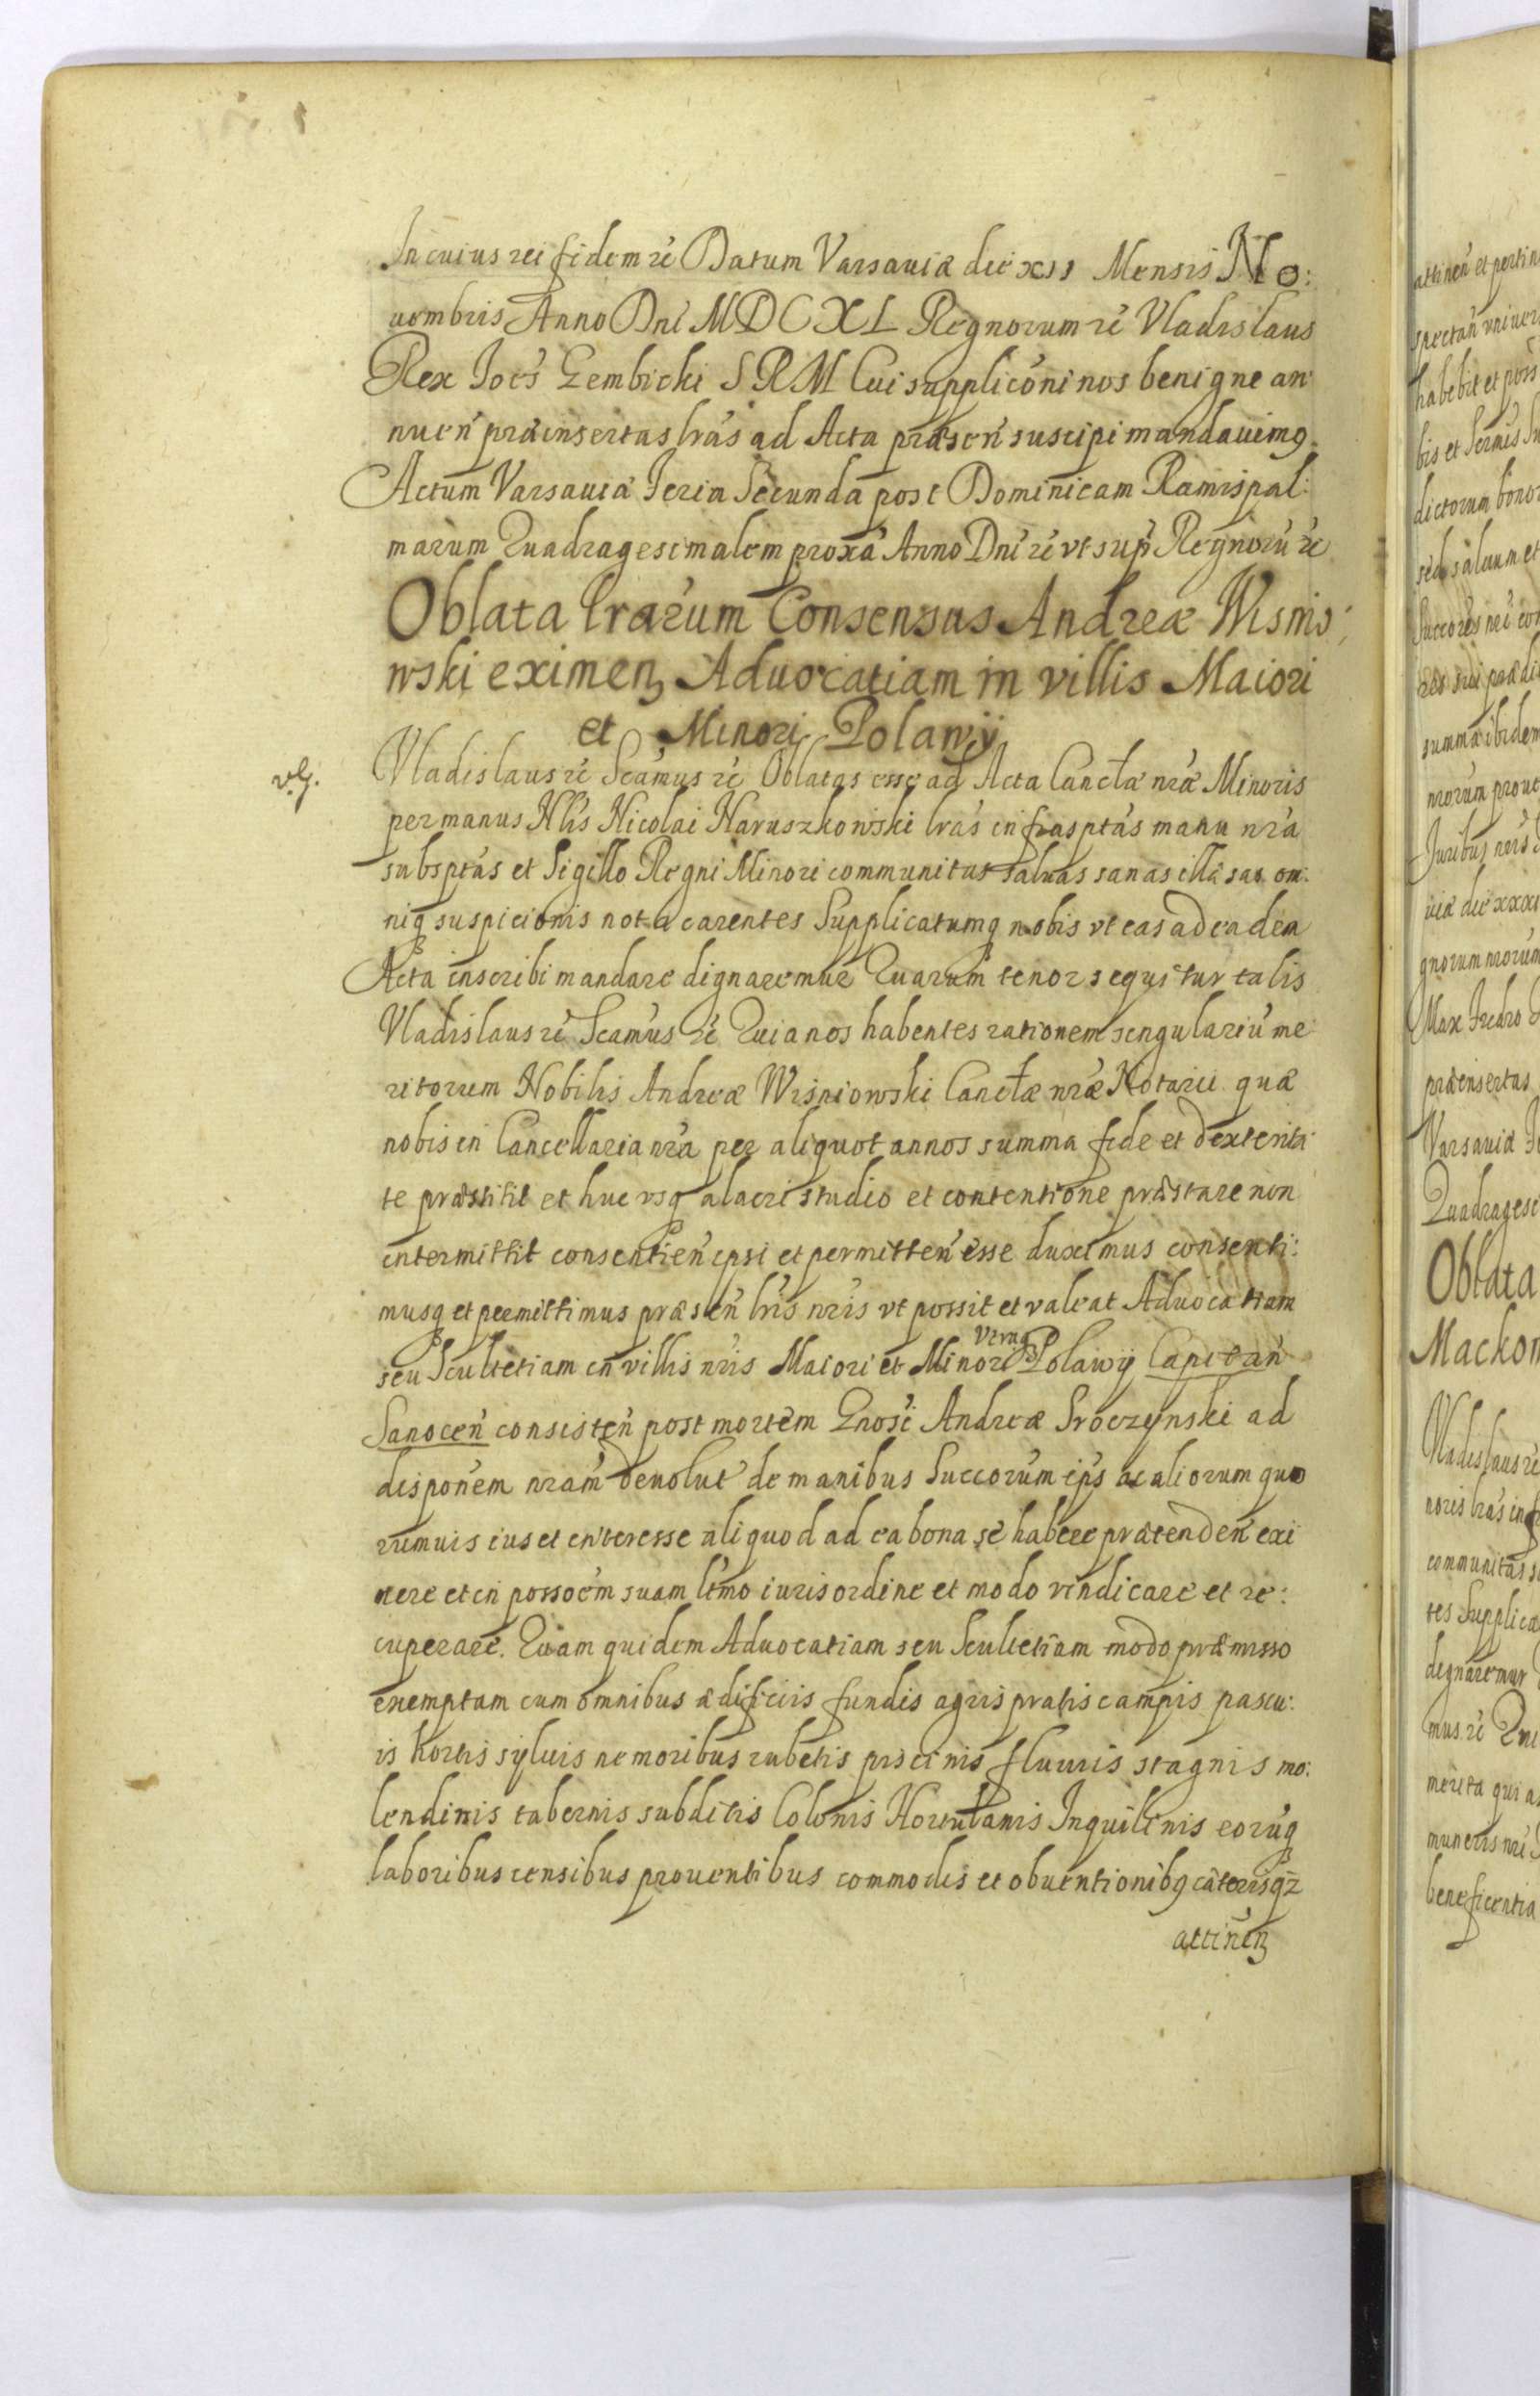 In cuius rei fidem ré Datum Varsauiæ die xii Mensis No:
uembris Anno Dni MDCXL Regnorum ré Vladislaus
Rex Joēs Gembicki S R M Cui suppliconi nos benigne an
nueń præinsertas lrás ad Acta præseń suscipi mandauimꝰ.
Actum Varsauiæ Feria Secunda post Dominicam Ramispal:
marum Quadragesimalem proxá Anno Dni ré vt sup̃ Regnorú ré
Oblata lrarum Consensus Andreæ Wisnio
wski eximenꝫ Aduocatiam in villis Maiori
et Minori Polawÿ
Vladislaus ré Scámus ré Oblatas esse ad Acta Cancłæ nræ Minoris
per manus Nłis Nicolai Haruszkowski lrás infrasptás manu nrá
subsptás et Sigillo Regni Minori communitas saluas sanas illǽsas om:
niqꝫ suspicionis nota carentes Supplicatumqꝫ nobis vt eas ad eadem
Acta inscribi mandare dignaremur Quarum tenor sequitur talis
Vladislaus ré Scámus ré Quia nos habentes rationem singulariú me
ritorum Nobilis Andreæ Wisniowski Cancłæ nræ Notarii quæ
nobis in Cancellaria nrá per aliquot annos summa fide et dexterita
te præstitit et huc vsqꝫ alacri studio et contentione præstare non
intermittit consentień ipsi et permitteń esse duximus consenti:
musqꝫ et permittimus præseń lris nris vt possit et valeat Aduocatiam
seu Scultetiam in villis nris Maiori et Minori Polawÿ Capitań
Vtraqꝫ
Sanoceń consisteń post mortem Gnosi Andreæ Sroczynski ad
disponem nram deuolut de manibus Succorum eiꝰs ac aliorum quo
rumuis ius et interesse aliquod ad ea bona se habere prætendeń exi
mere et in possoem suam ltmo iuris ordine et modo vindicare et re:
cuperare. Quam quidem Aduocatiam seu Scultetiam modo præmisso
exemptam cum omnibus ædificiis fundis agris pratis campis pascu:
is hortis syluis nemoribus rubetis piscinis fluuiis stagnis mo:
lendinis tabernis subditis Colonis Hortulanis Inquilinis eorúqꝫ
laboribus censibus prouentibus commodis et obuentionibꝰ cǽterisqꝫ
attinéń